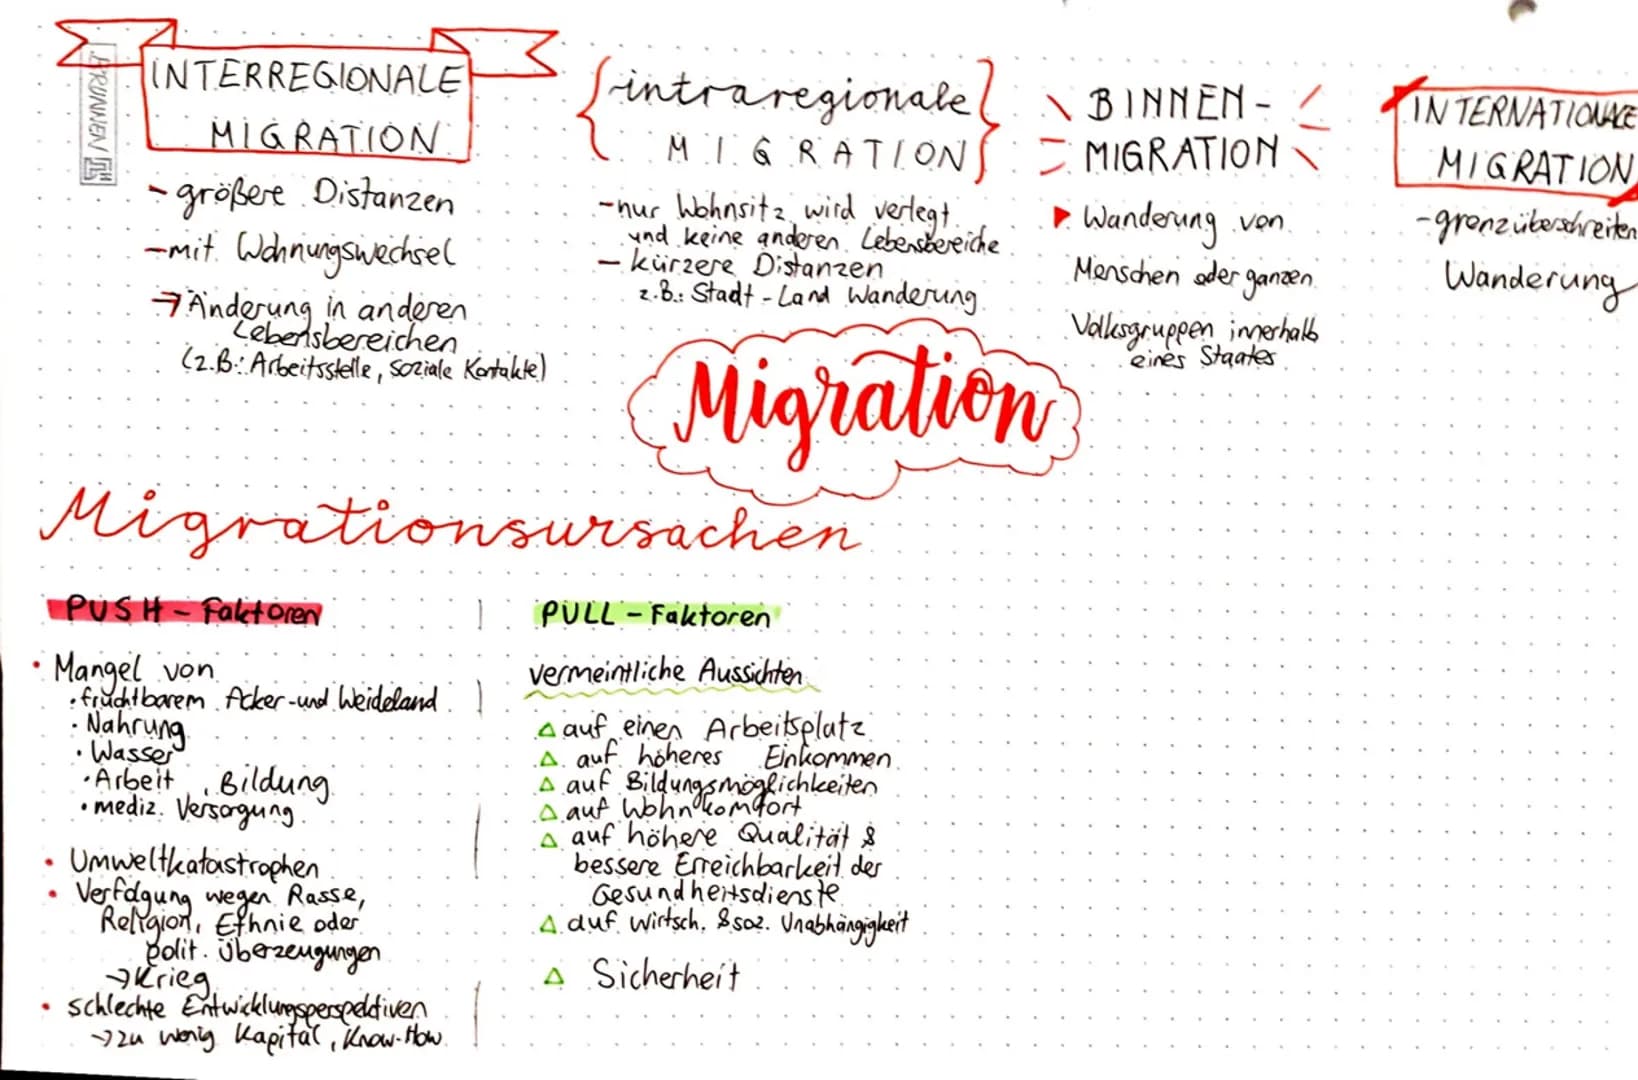 BRUNNEN
INTERREGIONALE
MIGRATION
- größere Distanzen
- mit Wohnungswechsel
→ Änderung in anderen
Lebensbereichen
(z.B.: Arbeitsstelle, soziale Kontakte)
intraregionale
MIGRATION
- nur Wohnsitz wird verlegt
und keine anderen Lebensbereiche
- kürzere Distanzen
z.B.: Stadt-Land Wanderung
BINNEN-
MIGRATION
Wanderung von
Menschen oder ganzen
Volksgruppen innerhalb
eines Staates
INTERNATIONALE
MIGRATION
- grenzüberschreiten
Wanderung
Migration
Migrationsursachen
PUSH - Faktoren
• Mangel von
• fruchtbarem Acker- und Weideland
• Nahrung
• Wasser
• Arbeit, Bildung
• mediz. Versorgung
• Umweltkatastrophen
• Verfolgung wegen Rasse,
Religion, Ethnie oder
polit. Überzeugungen
→ Krieg
• schlechte Entwicklungsperspektiven
→ zu wenig Kapital, Know-How
PULL - Faktoren
vermeintliche Aussichten
△ auf einen Arbeitsplatz
△ auf höheres Einkommen
△ auf Bildungsmöglichkeiten
△ auf Wohnkomfort
△ auf höhere Qualität &
bessere Erreichbarkeit der
Gesundheitsdienste
△ auf wirtsch. & soz. Unabhängigkeit
△ Sicherheit